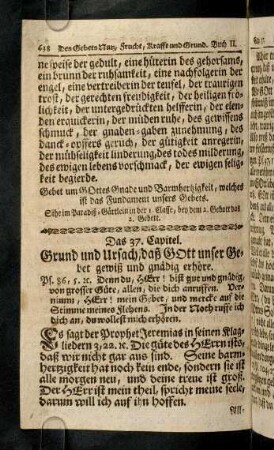 638 Des Gebets Nutz, Frucht, Krafft und Grund. Buch II.
ne speise der gedult, eine hüterin des gehorsams,
ein brunn der ruhsamkeit, eine nachfolgerin der
engel, eine vertreiberin der teufel, der traurigen
trost, der gerechten freudigkeit, der heiligen frö-
lichkeit, der untergedrückten helfferin, der elen-
den erquickerin, der müden ruhe, des gewissens
schmuck, der gnaden-gaben zunehmung, des
danck-opffers geruch, der gütigkeit anregerin,
der mühseligkeit linderung, des todes milderung,
des ewigen lebens vorschmack, der ewigen selig-
keit begierde.
Gebet um GOttes Gnade und Barmhertzigkeit, welches
ist das Fundament unsers Gebets.
Siehe im Paradiß-Gärtlein in der 2. Classe, bey dem 2. Gebet das
2. Gebett.
Das 37. Capitel.
Grund und Ursach, daß GOtt unser Ge-
bet gewiß und gnädig erhöre.
Ps. 86, 5. ꝛc. Denn du, HErr! bist gut und gnädig,
von grosser Güte, allen, die dich anruffen. Ver-
nimm, HErr! mein Gebet, und mercke auf die
Stimme meines flehens. In der Noth ruffe ich
dich an, du wollest mich erhören.
Es sagt der Prophet Jeremias in seinen Klag-
liedern 3, 22. ꝛc. Die güte des HErrn ists,
daß wir nicht gar aus sind. Seine barm-
hertzigkeit hat noch kein ende, sondern sie ist
alle morgen neu, und deine treue ist groß.
Der HErr ist mein theil, spricht meine seele,
darum will ich auf ihn hoffen.